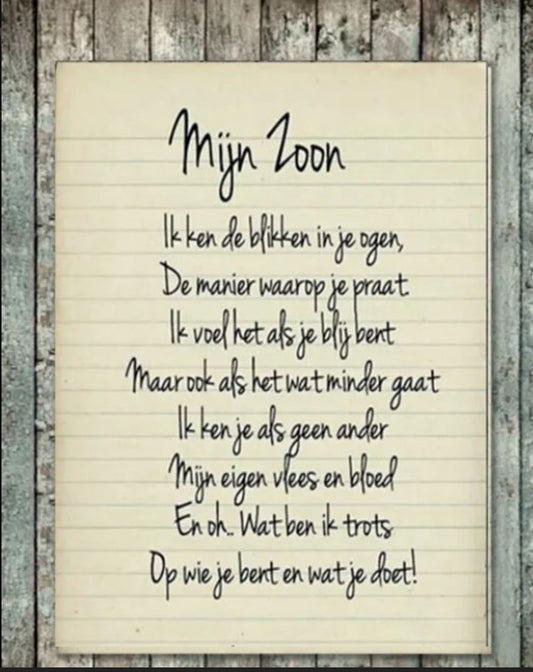 Mijn Zoon
Ik ken de blikken in je ogen,
De manier waarop je praat
Ik voel het als je blij bent
Maar ook als het wat minder gaat
Ik ken je als geen ander
Mijn eigen vlees en bloed
En oh.. Wat ben ik trots
Op wie je bent en wat je doet!